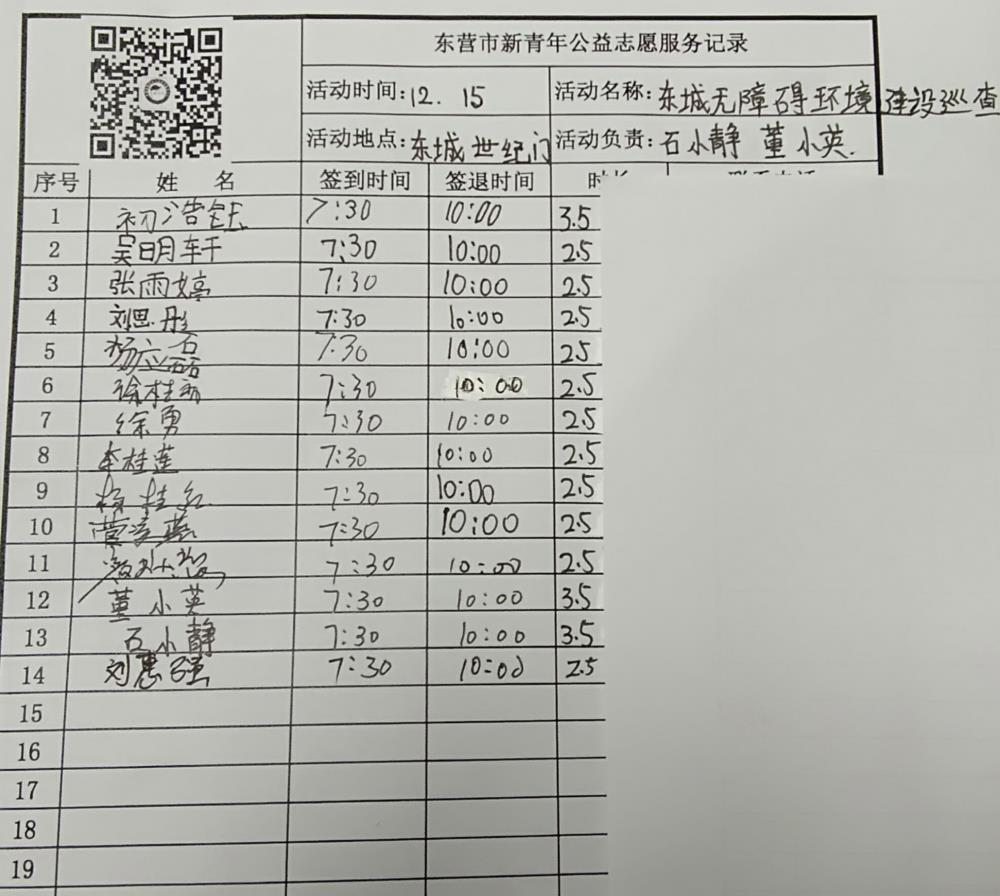 东营市新青年公益志愿服务记录
活动时间:12.15 活动名称:东城无障碍环境建设巡查
活动地点:东城世纪门 活动负责:石小静 董小英.
序号 姓 名 签到时间 签退时间
1 初浩钰 7:30 10:00 3.5
2 吴明轩 7:30 10:00 2.5
3 张雨婷 7:30 10:00 2.5
4 刘思彤 7:30 10:00 2.5
5 杨应磊 7:30 10:00 2.5
6 徐桂 7:30 10:00 2.5
7 徐勇 7:30 10:00 2.5
8 李桂莲 7:30 10:00 2.5
9 杨桂红 7:30 10:00 2.5
10 7:30 10:00 2.5
11 7:30 10:00 2.5
12 董小英 7:30 10:00 3.5
13 石小静 7:30 10:00 3.5
14 刘惠强 7:30 10:00 2.5
15
16
17
18
19